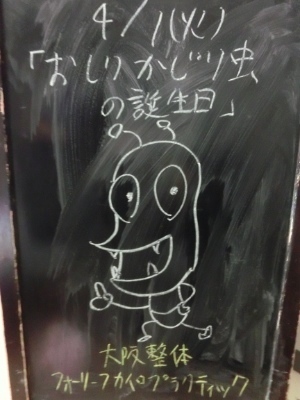 4/1(火)
「おしりかじり虫
の誕生日」
大阪整体
フォーリーフカイロプラクティック